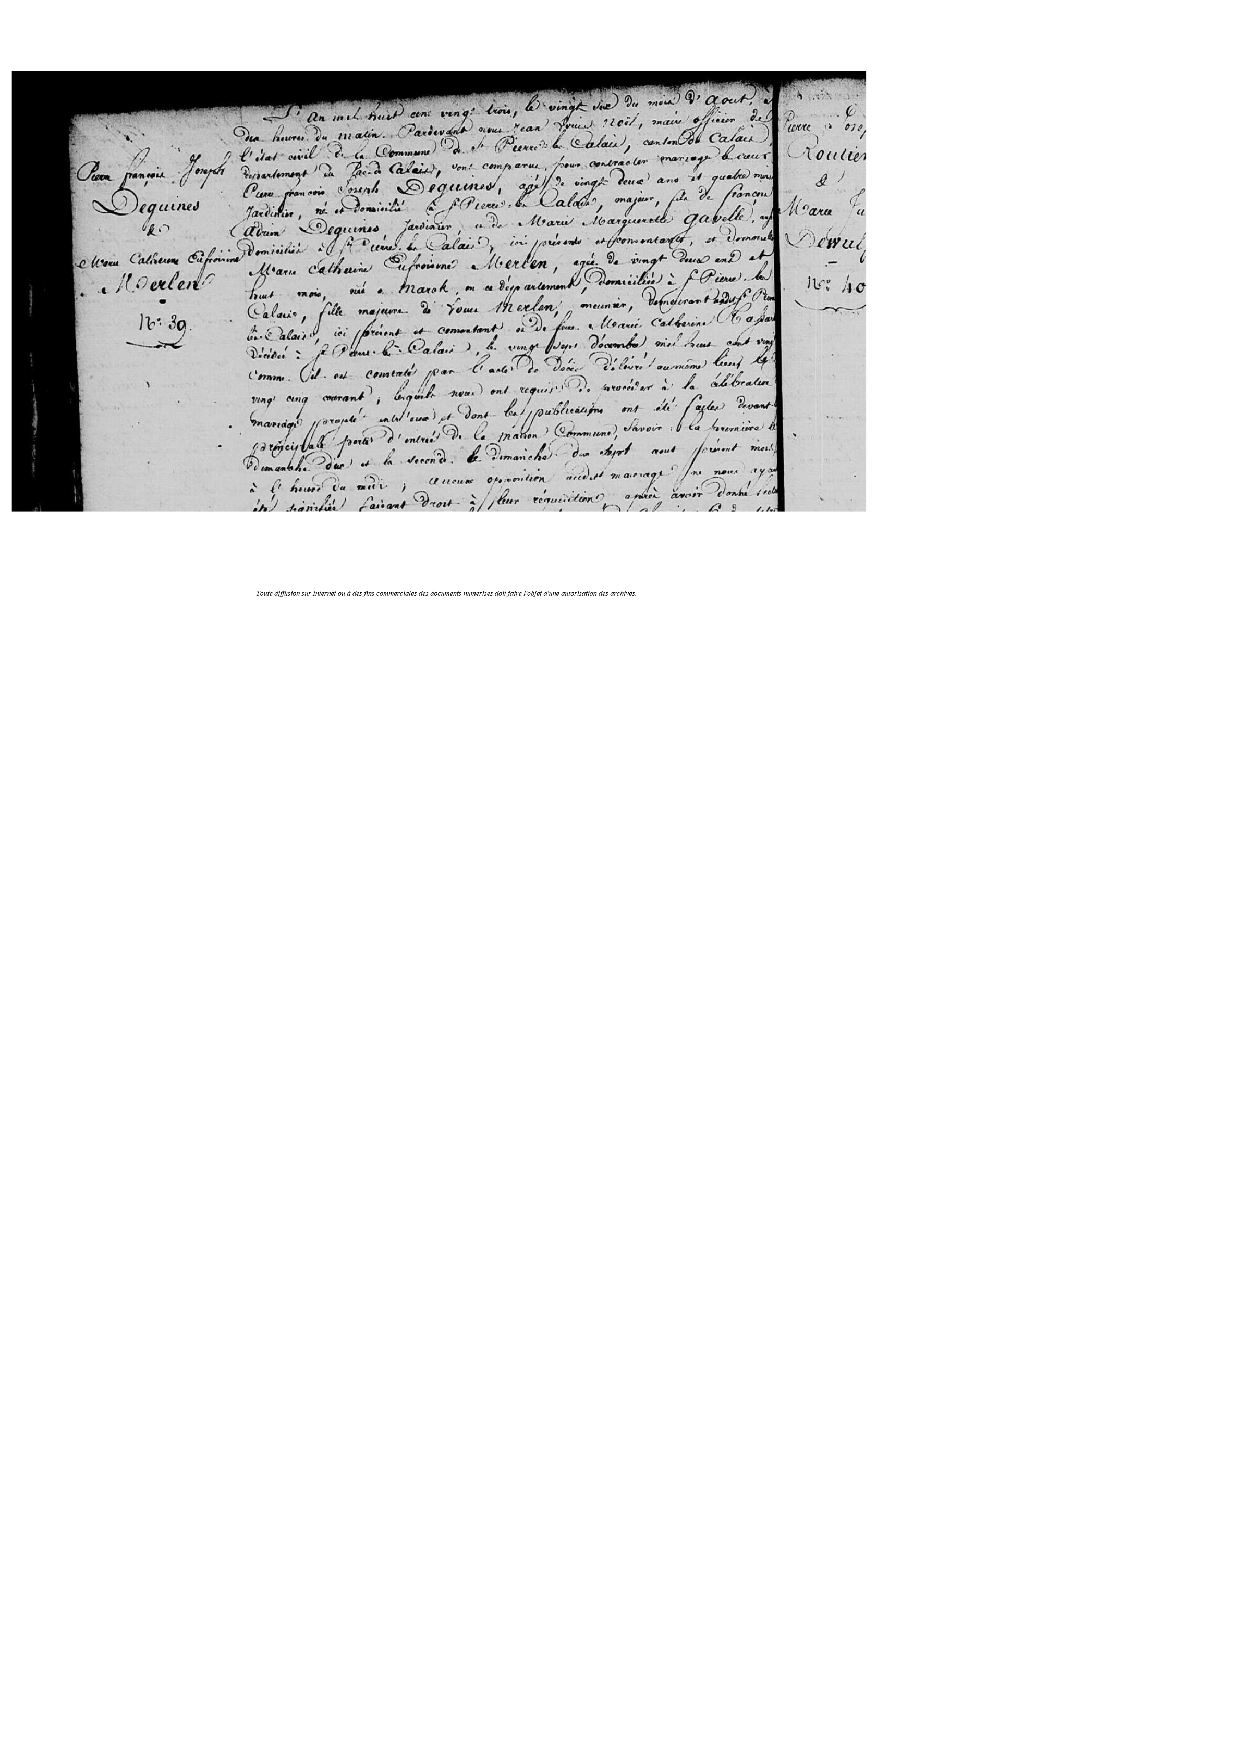 Pierre françois Joseph
Dequines
&
Marie Catherine Eufroisine
Merlen
N.° 39.
L'An mil huit cent vingt trois, le vingt six du mois d'Aout, à
dix heures du matin. Pardevant nous Jean Louis Noël, maire officier de
l'état civil de la Commune de St Pierre-les-Calais, canton de Calais,
Département du Pas-de-Calais, sont comparus pour contracter mariage le sieur
Pierre françois Joseph Dequines, agé de vingt deux ans et quatre mois
Jardinier, né et domicilié à St Pierre-les-Calais, majeur, fils de françois
Adrien Dequines Jardinier, & de Marie Marguerite Gavelle,
domiciliés à St Pierre-les-Calais, ici présents et consentants, et Demoiselle
Marie Catherine Eufroisine Merlen, agée de vingt deux ans et
huit mois, née à Marck, en ce département, domiciliée à St Pierre-les
Calais, fille majeure de Louis Merlen, meunier, demeurant audit St Pierre
les-Calais, ici présent et consentant & de feue Marie Catherine
Décédée à St Pierre-les-Calais, le vingt sept Décembre mil huit cent vingt
comme il est constaté par l'acte de Décès délivré au même lieu le
vingt cinq courant; lesquels nous ont requis de procéder à la célébration
mariage projeté entr'eux et dont les publications ont été faites devant
principale porte d'entrée de la maison Commune, Savoir: la première le
dimanche dix et la seconde le dimanche dix sept aout présent mois,
à l'heure du midi; Aucune opposition audit mariage ne nous ayant
été signifiée faisant droit à leur réquisition, après avoir donné lecture
Pierre
Routier
&
Marie
Dewul
N.° 40
Toute diffusion sur Internet ou à des fins commerciales des documents numérisés doit faire l'objet d'une autorisation des archives.